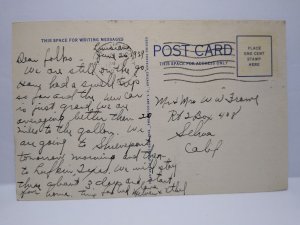 THIS SPACE FOR WRITING MESSAGES
Louisiana
June 26, 1939
Dear folks -
We are still on the go
Have had a swell trip
so far and the new car
is just great. We are
averaging better than 20
miles to the gallon. We
are going to Shreveport
tomorrow morning and then
to Lufkin, Texas. We will stay
there about 3 days and start
for home.
POST CARD
THIS SPACE FOR ADDRESS ONLY
PLACE
ONE CENT
STAMP
HERE
Mr & Mrs W W
Rt 2 Box 448
Selma
Calif